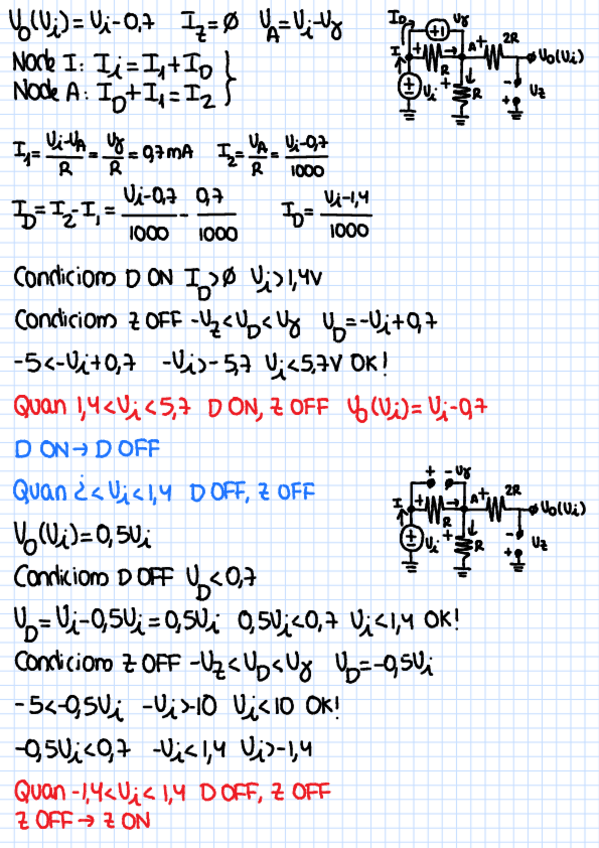 Vo(Vi)=Vi-0,7 Iz=Ø VA=Vi-Vγ
Node I: Ii=I1+ID
Node A: ID+I1=I2
I1=(Vi-VA)/R=Vγ/R=0,7mA I2=VA/R=(Vi-0,7)/1000
ID=I2-I1=(Vi-0,7)/1000-0,7/1000 ID=(Vi-1,4)/1000
ID Vγ
I + +1 - A + 2R Vo(Vi)
R
Vi + R - + Vz
Condicions D ON ID>Ø Vi>1,4V
Condicions Z OFF -Vz<VD<Vγ VD=-Vi+0,7
-5<-Vi+0,7 -Vi>-5,7 Vi<5,7V OK!
Quan 1,4<Vi<5,7 D ON, Z OFF Vo(Vi)=Vi-0,7
D ON→D OFF
Quan ¿<Vi<1,4 D OFF, Z OFF
Vo(Vi)=0,5Vi
Condicions D OFF VD<0,7
VD=Vi-0,5Vi=0,5Vi 0,5Vi<0,7 Vi<1,4 OK!
+ - Vγ
I + A + 2R Vo(Vi)
R
Vi + R - + Vz
Condicions Z OFF -Vz<VD<Vγ VD=-0,5Vi
-5<-0,5Vi -Vi>-10 Vi<10 OK!
-0,5Vi<0,7 -Vi<1,4 Vi>-1,4
Quan -1,4<Vi<1,4 D OFF, Z OFF
Z OFF→Z ON